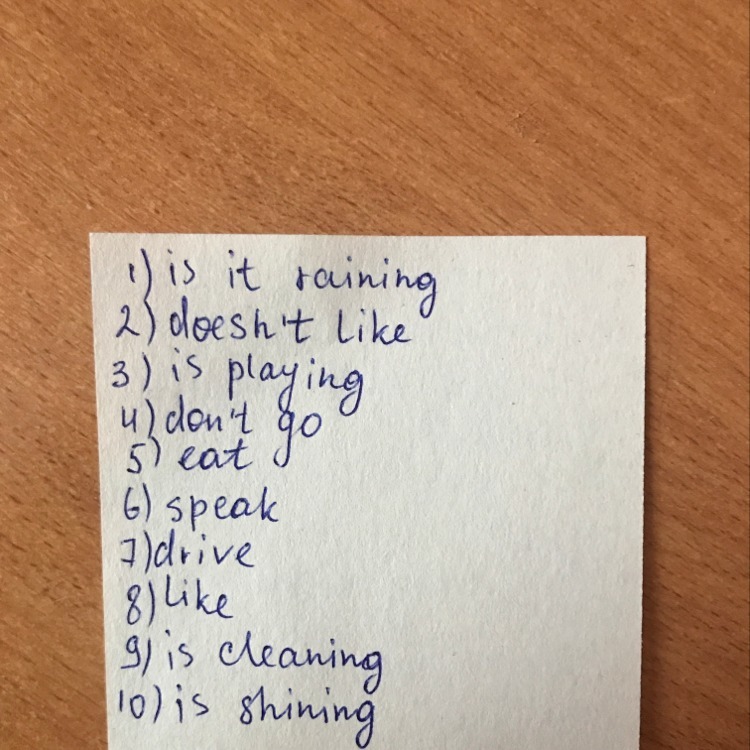 1) is it raining
2) doesn't like
3) is playing
4) don't go
5) eat
6) speak
7) drive
8) like
9) is cleaning
10) is shining